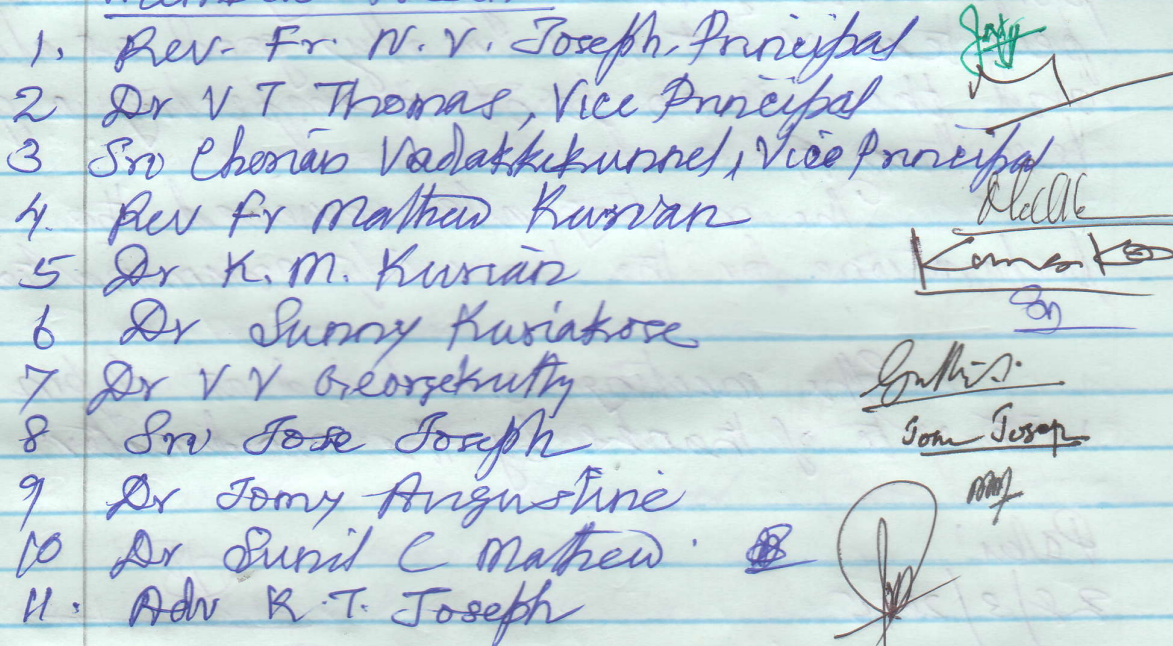 1. Rev. Fr. N. V. Joseph, Principal
2 Dr V T Thomas, Vice Principal
3 Sri Cherian Vadakkekunnel, Vice Principal
4. Rev Fr Mathew Kurian
5 Dr K. M. Kurian
6 Dr Sunny Kuriakose
7 Dr V V Georgekutty
8 Sri Jose Joseph Jose Joseph
9 Dr Tomy Augustine
10 Dr Sunil C Mathew.
11. Adv K. T. Joseph